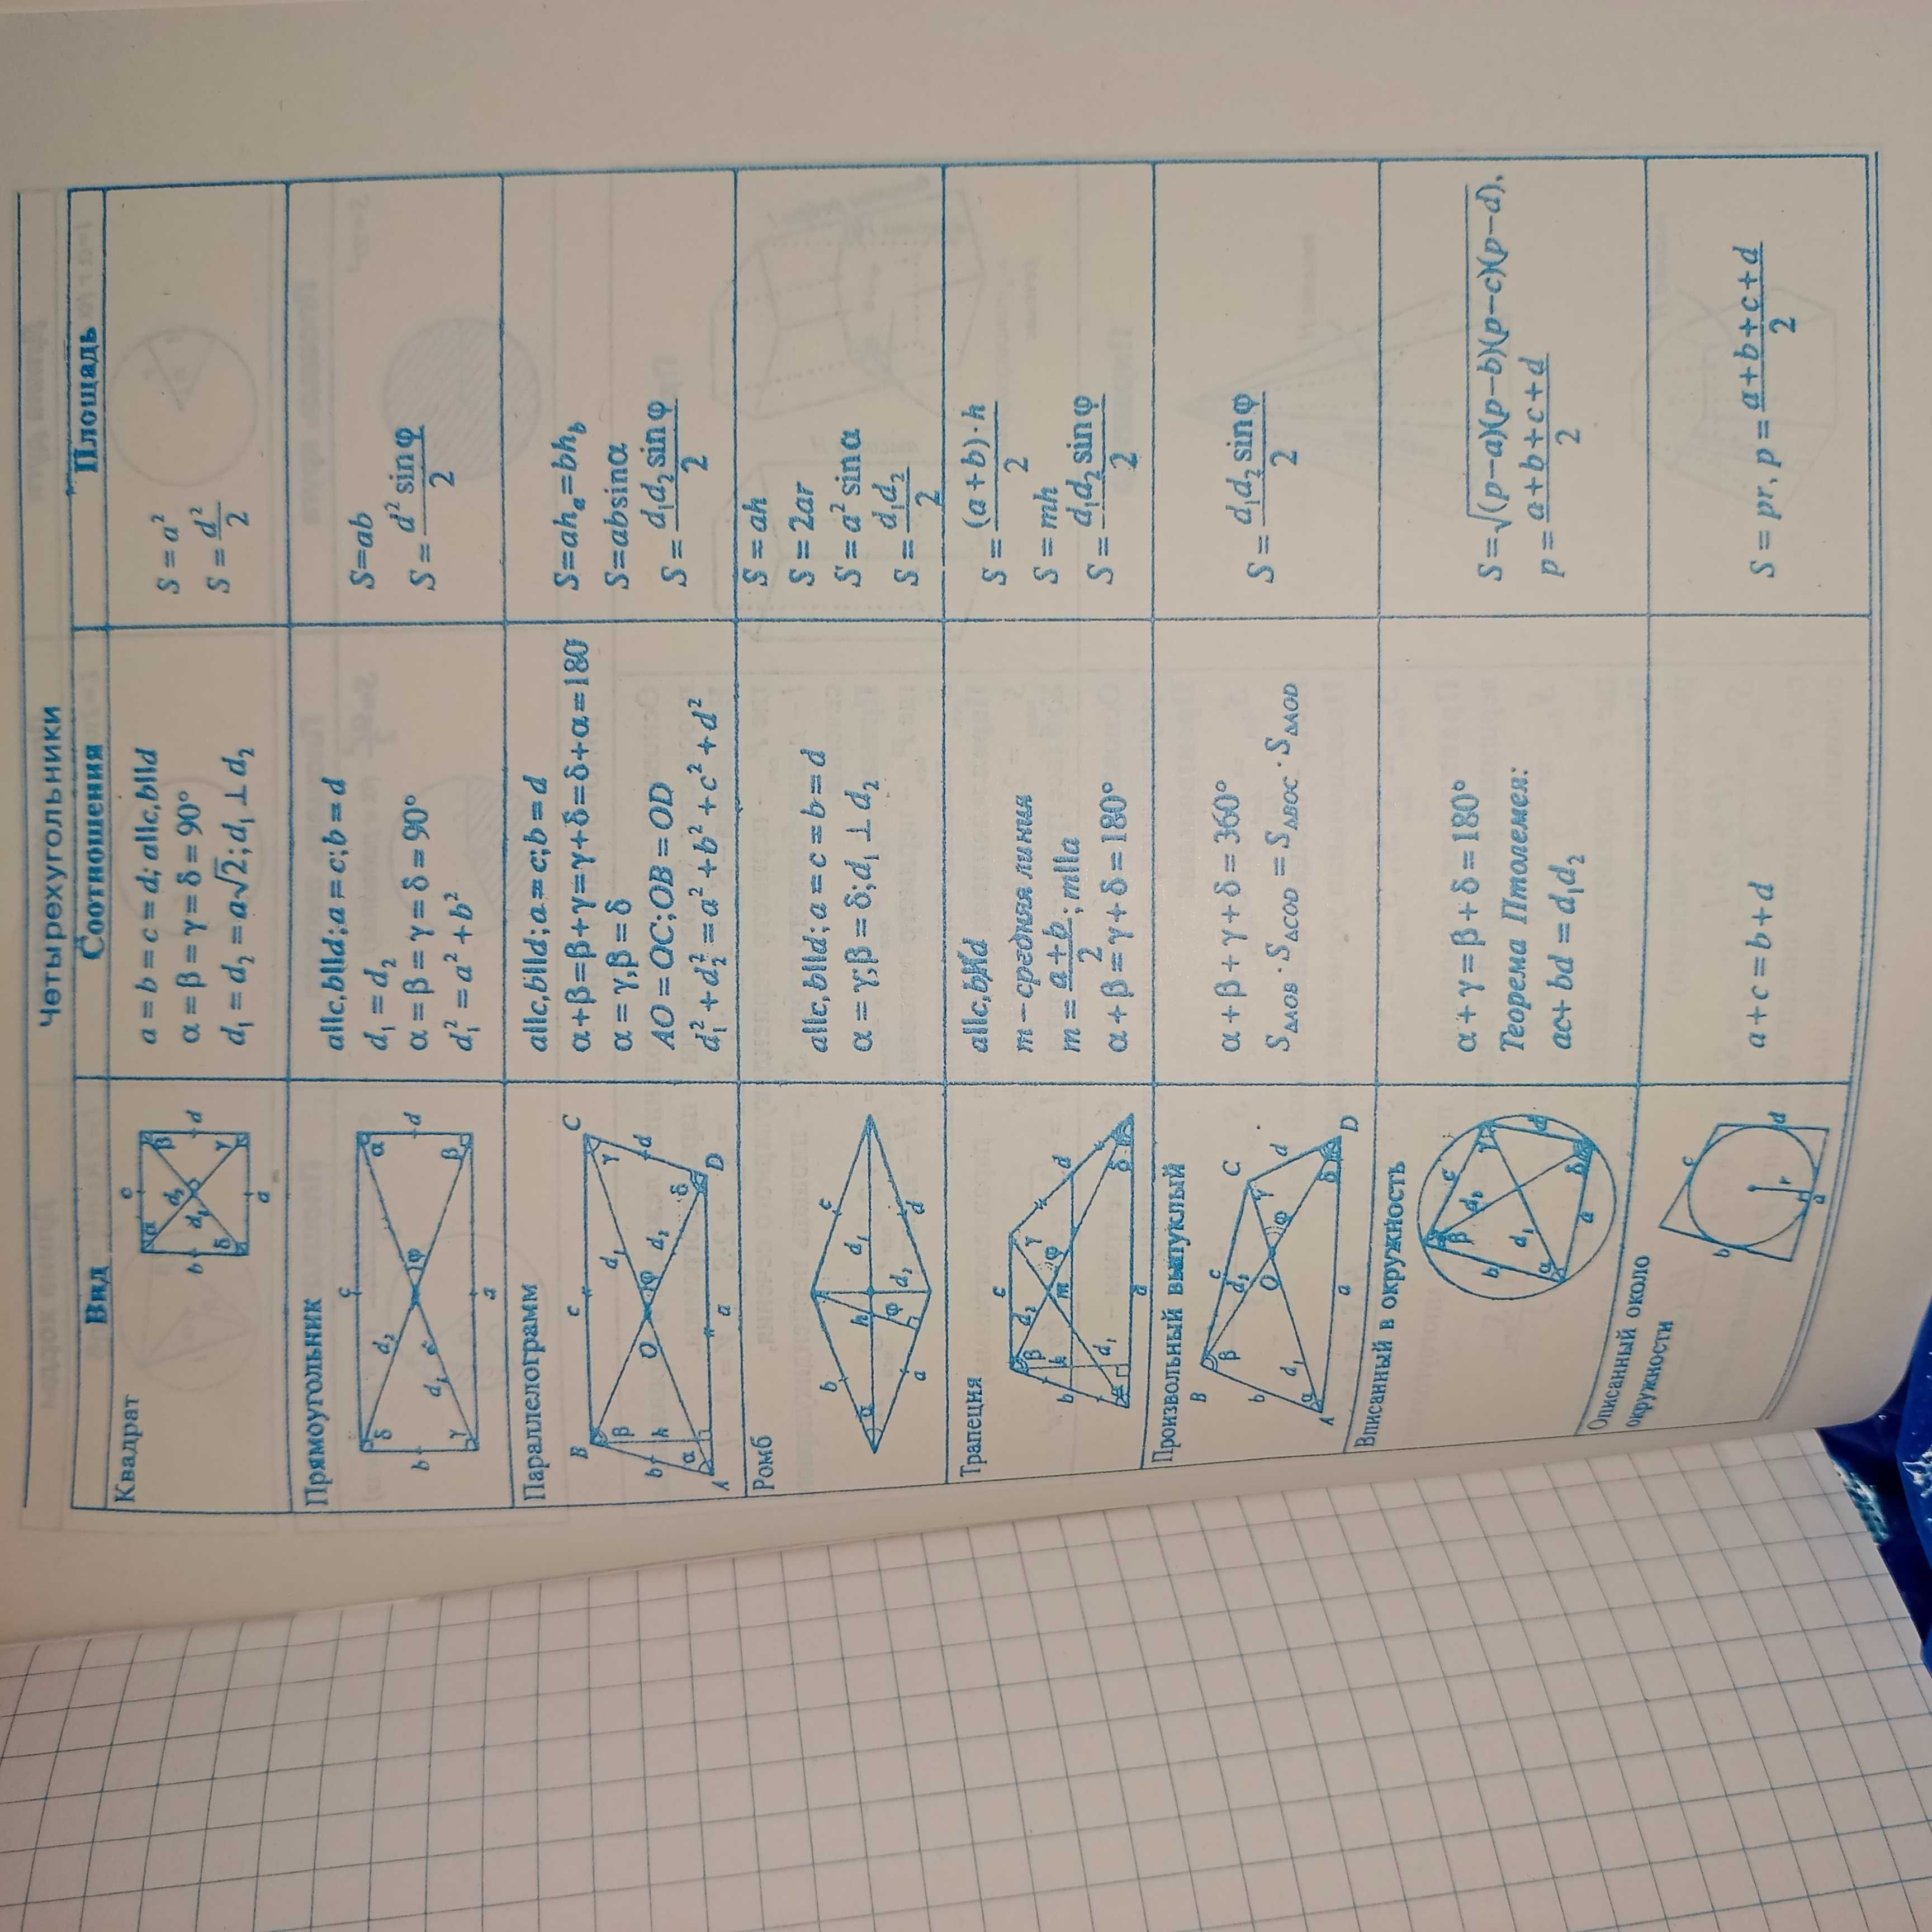 Четырехугольники
Вид Соотношения Площадь
Квадрат
α β γ δ a b c d d₁ d₂
a = b = c = d; a||c, b||d
α = β = γ = δ = 90°
d₁ = d₂ = a√2; d₁ ⊥ d₂
S = a²
S = d²/2
Прямоугольник
δ α γ β φ a b c d d₂ d₁
a||c, b||d; a = c; b = d
d₁ = d₂
α = β = γ = δ = 90°
d₁² = a² + b²
S=ab
S = d² sin φ/2
Параллелограмм
A B C D O α β γ δ φ a b c d h d₁ d₂
a||c, b||d; a = c; b = d
α+β=β+γ=γ+δ=δ+α=180
α = γ, β = δ
AO = OC; OB = OD
d₁² + d₂² = a² + b² + c² + d²
S=ahₐ=bh_b
S=absinα
S = d₁d₂ sin φ/2
Ромб
a b c d d₁ d₂ h α φ
a||c, b||d; a = c = b = d
α = γ; β = δ; d₁ ⊥ d₂
S = ah
S = 2ar
S = a² sin α
S = d₁d₂/2
Трапеция
a b c d m h d₁ d₂ α β γ δ φ
a||c, b∦d
m – средняя линия
m = a + b/2; m||a
α + β = γ + δ = 180°
S = (a + b) · h/2
S = mh
S = d₁d₂ sin φ/2
Произвольный выпуклый
A B C D O a b c d d₁ d₂ α β γ δ φ
α + β + γ + δ = 360°
S△AOB · S△COD = S△BOC · S△AOD
S = d₁d₂ sin φ/2
Вписанный в окружность
a b c d d₁ d₂ α β γ δ
α + γ = β + δ = 180°
Теорема Птолемея:
ac + bd = d₁d₂
S = √(p–a)(p–b)(p–c)(p–d),
p = a + b + c + d/2
Описанный около
окружности
a b c d r
a + c = b + d
S = pr, p = a + b + c + d/2